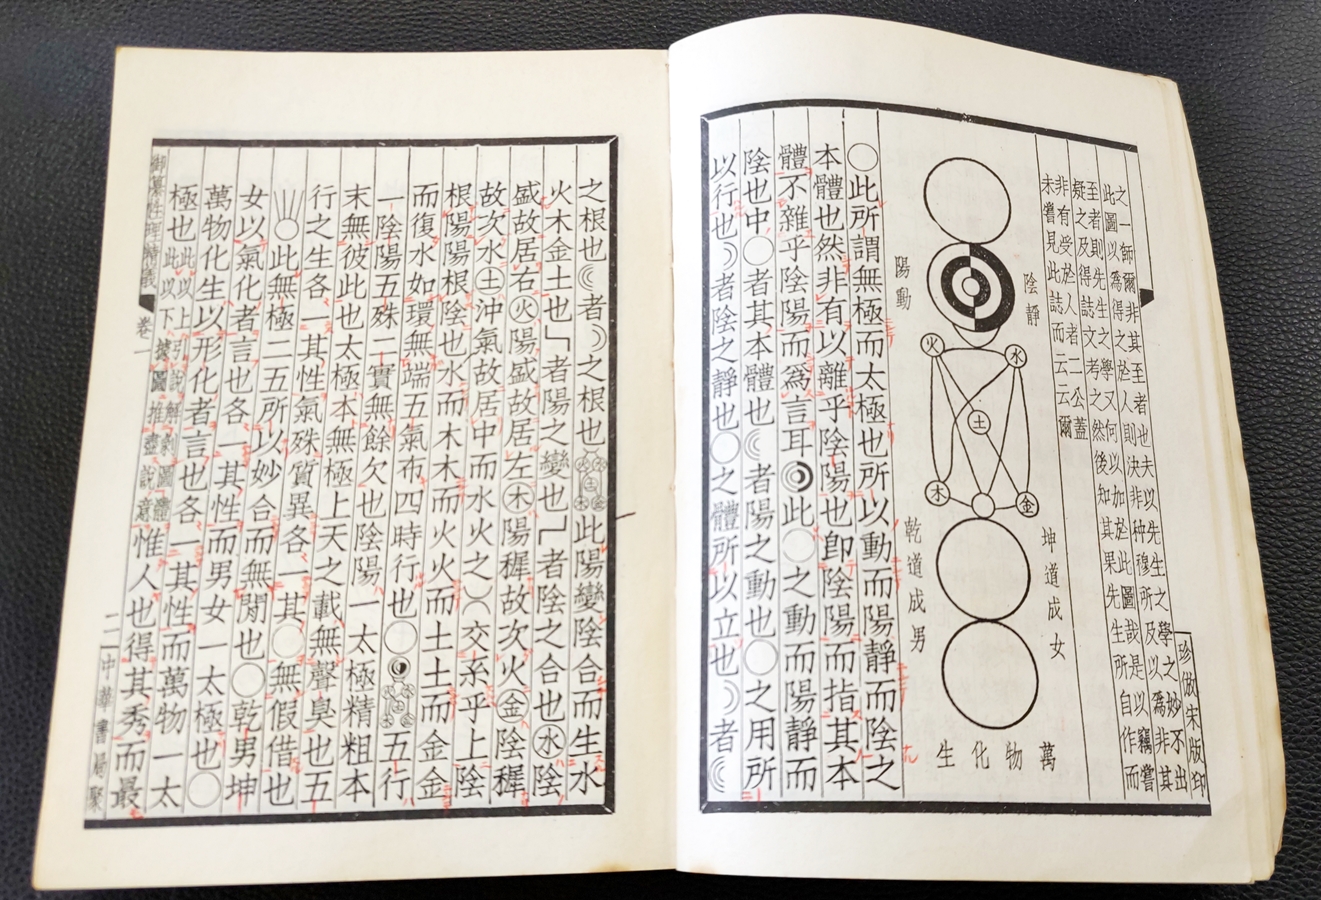 之一師爾非其至者也夫以先生之學之妙不出
此圖以爲得之於人則決非种穆所及以爲非其
至者則先生之學又何以加於此圖哉是以竊嘗
疑之及得誌文考之然後知其果先生所自作而
非有受於人者二公蓋
未嘗見此誌而云云爾
珍倣宋版印
陰靜
陽動
火
水
土
木
金
坤道成女
乾道成男
萬物化生
○此所謂無極而太極也所以動而陽靜而陰之
本體也然非有以離乎陰陽也卽陰陽而指其本
體不雜乎陰陽而爲言耳此○之動而陽靜而
陰也中○者其本體也者陽之動也○之用所
以行也者陰之靜也○之體所以立也者
之根也者之根也此陽變陰合而生水
火木金土也者陽之變也者陰之合也水陰
盛故居右火陽盛故居左木陽穉故次火金陰穉
故次水土沖氣故居中而水火之交系乎上陰
根陽陽根陰也水而木木而火火而土土而金金
而復水如環無端五氣布四時行也○五行
一陰陽五殊二實無餘欠也陰陽一太極精粗本
末無彼此也太極本無極上天之載無聲臭也五
行之生各一其性氣殊質異各一其○無假借也
此無極二五所以妙合而無閒也○乾男坤
女以氣化者言也各一其性而男女一太極也○
萬物化生以形化者言也各一其性而萬物一太
極也此以上引說解剝圖體此以下據圖推盡說意惟人也得其秀而最
御纂性理精義
卷一
二
中華書局聚